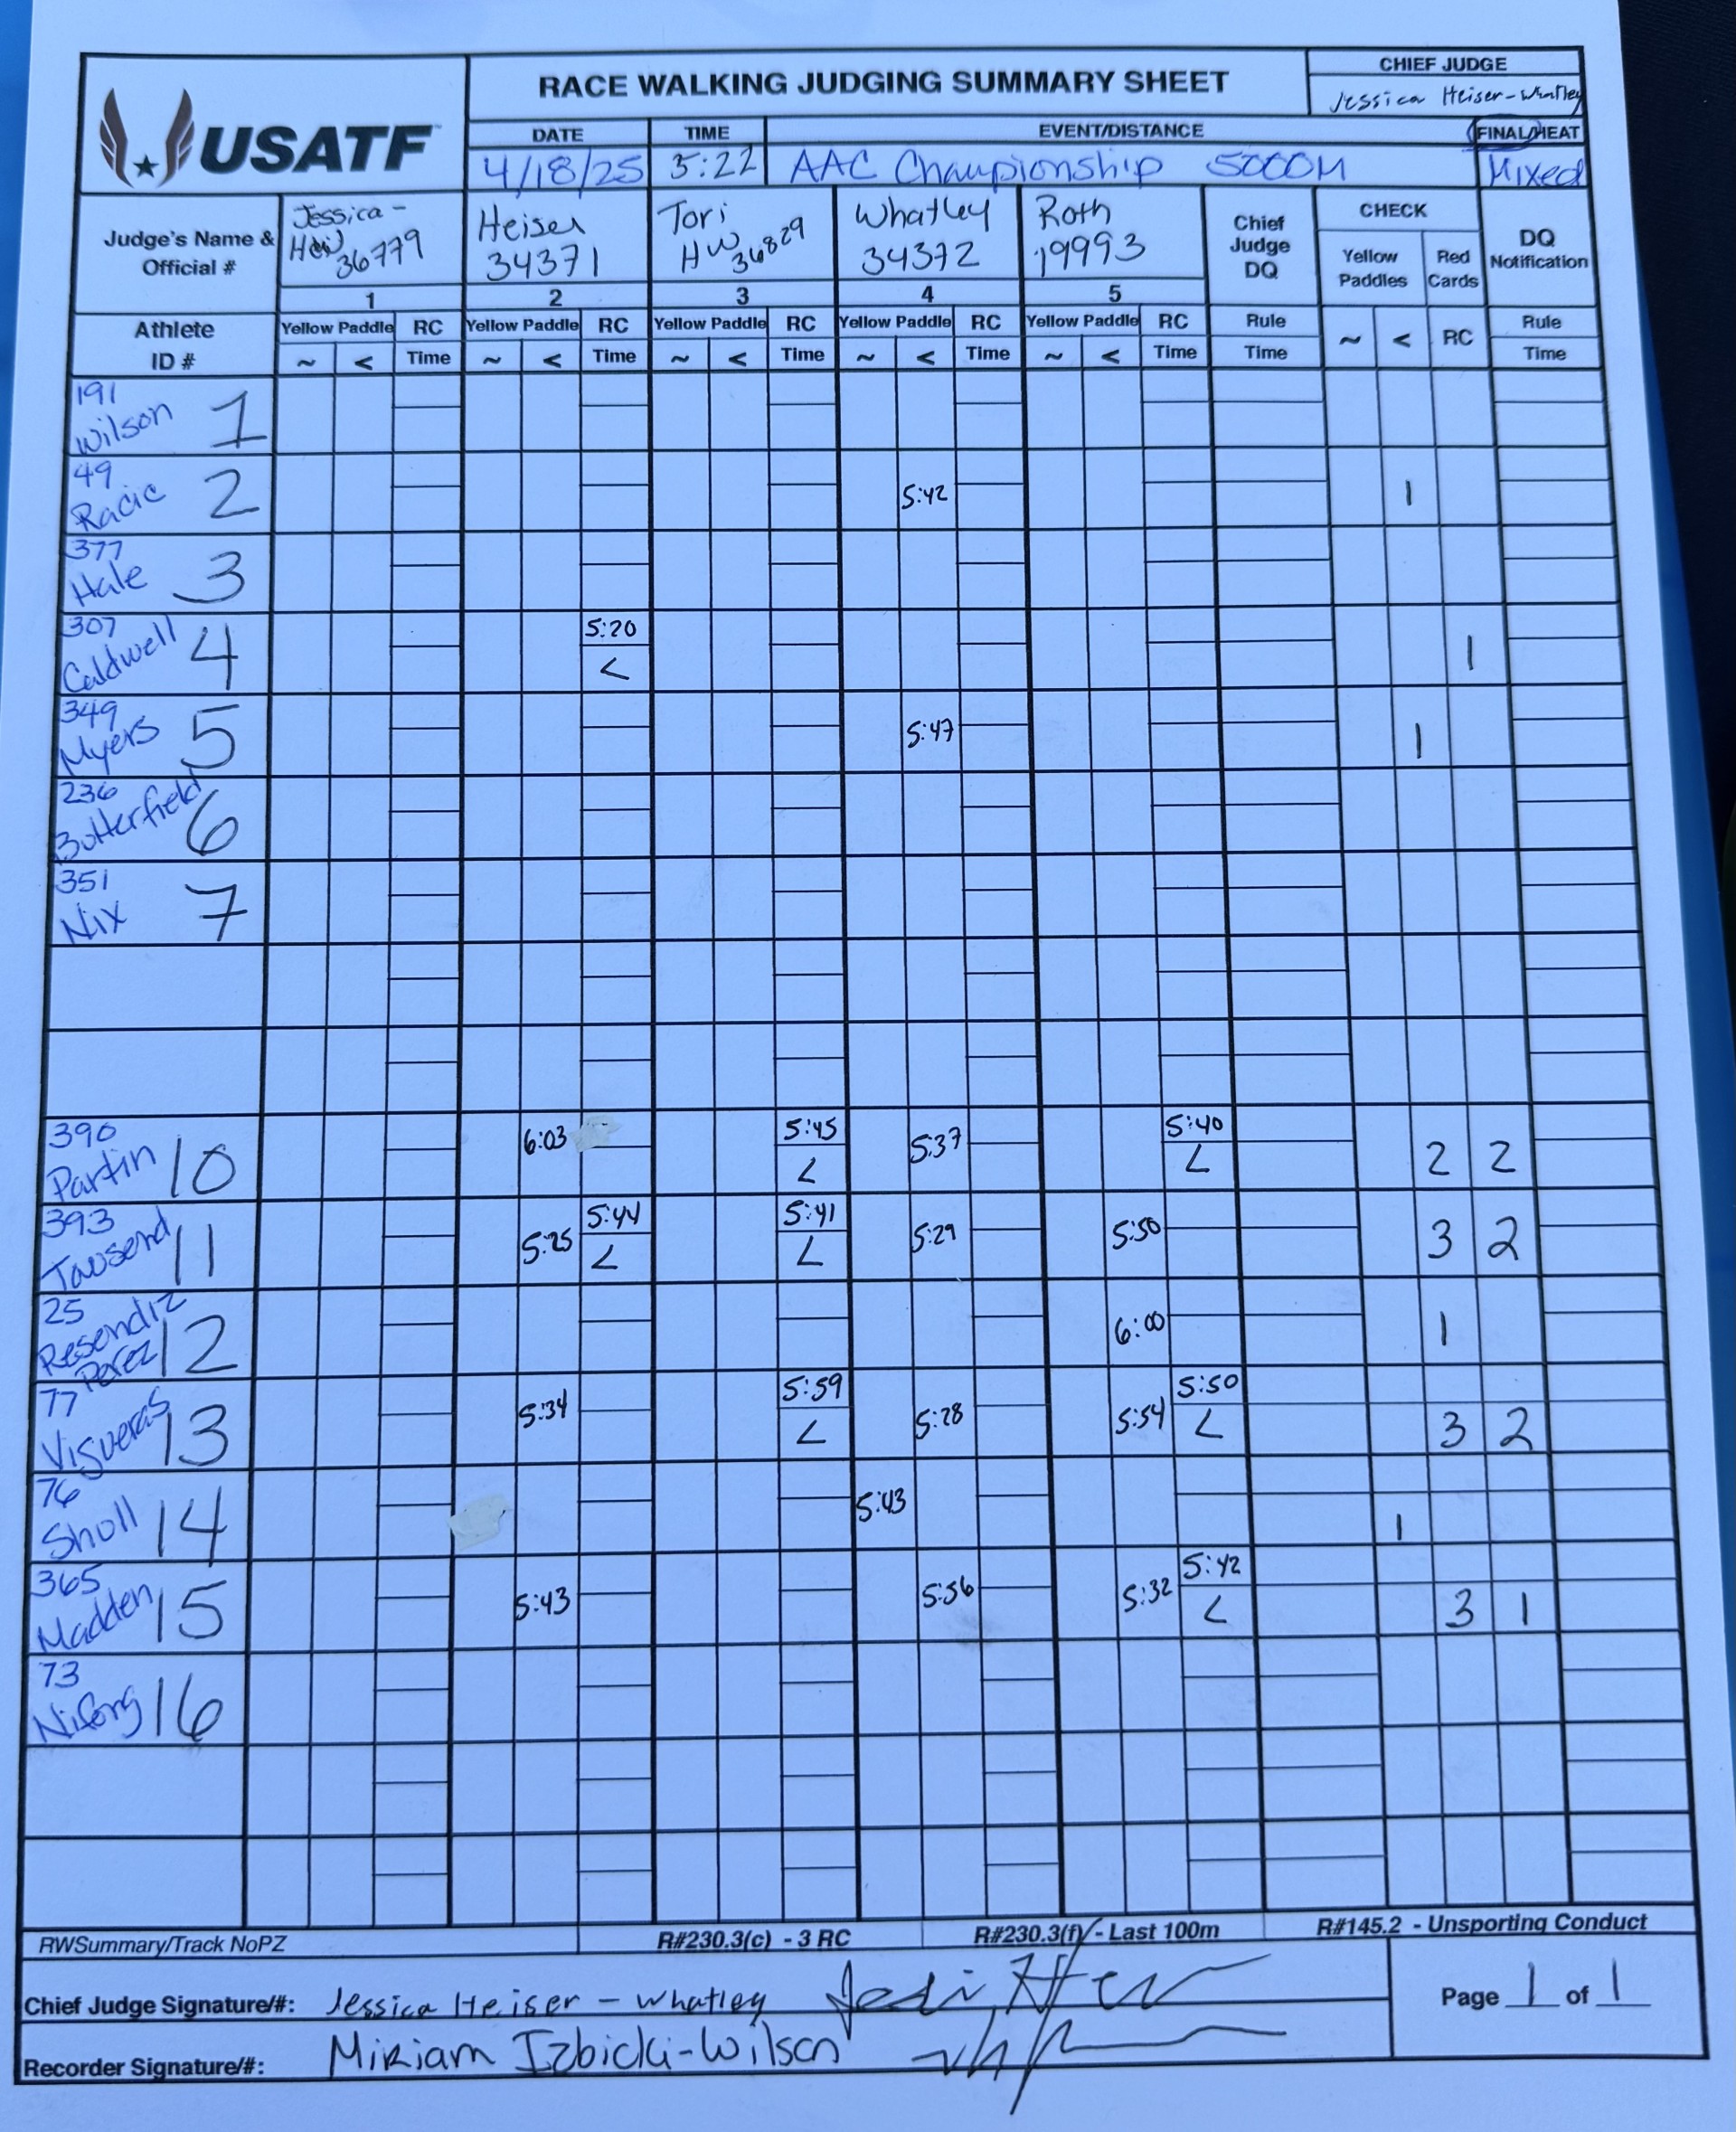 USATF
RACE WALKING JUDGING SUMMARY SHEET
CHIEF JUDGE
Jessica Heiser-Whatley
DATE TIME EVENT/DISTANCE FINAL/HEAT
4/18/25 5:22 AAC Championship 5000M Mixed
Judge's Name & Official #
Jessica - 36779
Heiser 34371
Tori HW 36829
Whatley 34372
Roth 19993
Chief Judge DQ
CHECK
Yellow Paddles Red Cards
DQ Notification
1 2 3 4 5
Athlete ID #
Yellow Paddle RC Yellow Paddle RC Yellow Paddle RC Yellow Paddle RC Yellow Paddle RC Rule ~ < RC Rule
~ < Time ~ < Time ~ < Time ~ < Time ~ < Time Time Time
191 Wilson 1
49 Racic 2 5:42 1
377 Hale 3
307 Caldwell 4 5:20 < 1
349 Myers 5 5:47 1
236 Butterfield 6
351 Nix 7
390 Partin 10 6:03 5:45 < 5:37 5:40 < 2 2
393 Tausend 11 5:25 5:44 < 5:41 < 5:29 5:50 3 2
25 Resendiz Perez 12 6:00 1
77 Visueras 13 5:34 5:59 < 5:28 5:54 5:50 < 3 2
76 Sholl 14 5:43 1
365 Madden 15 5:43 5:56 5:32 5:42 < 3 1
73 Nifong 16
RWSummary/Track NoPZ R#230.3(c) - 3 RC R#230.3(f) - Last 100m R#145.2 - Unsporting Conduct
Chief Judge Signature/#: Jessica Heiser-Whatley
Page 1 of 1
Recorder Signature/#: Miriam Izbicki-Wilson